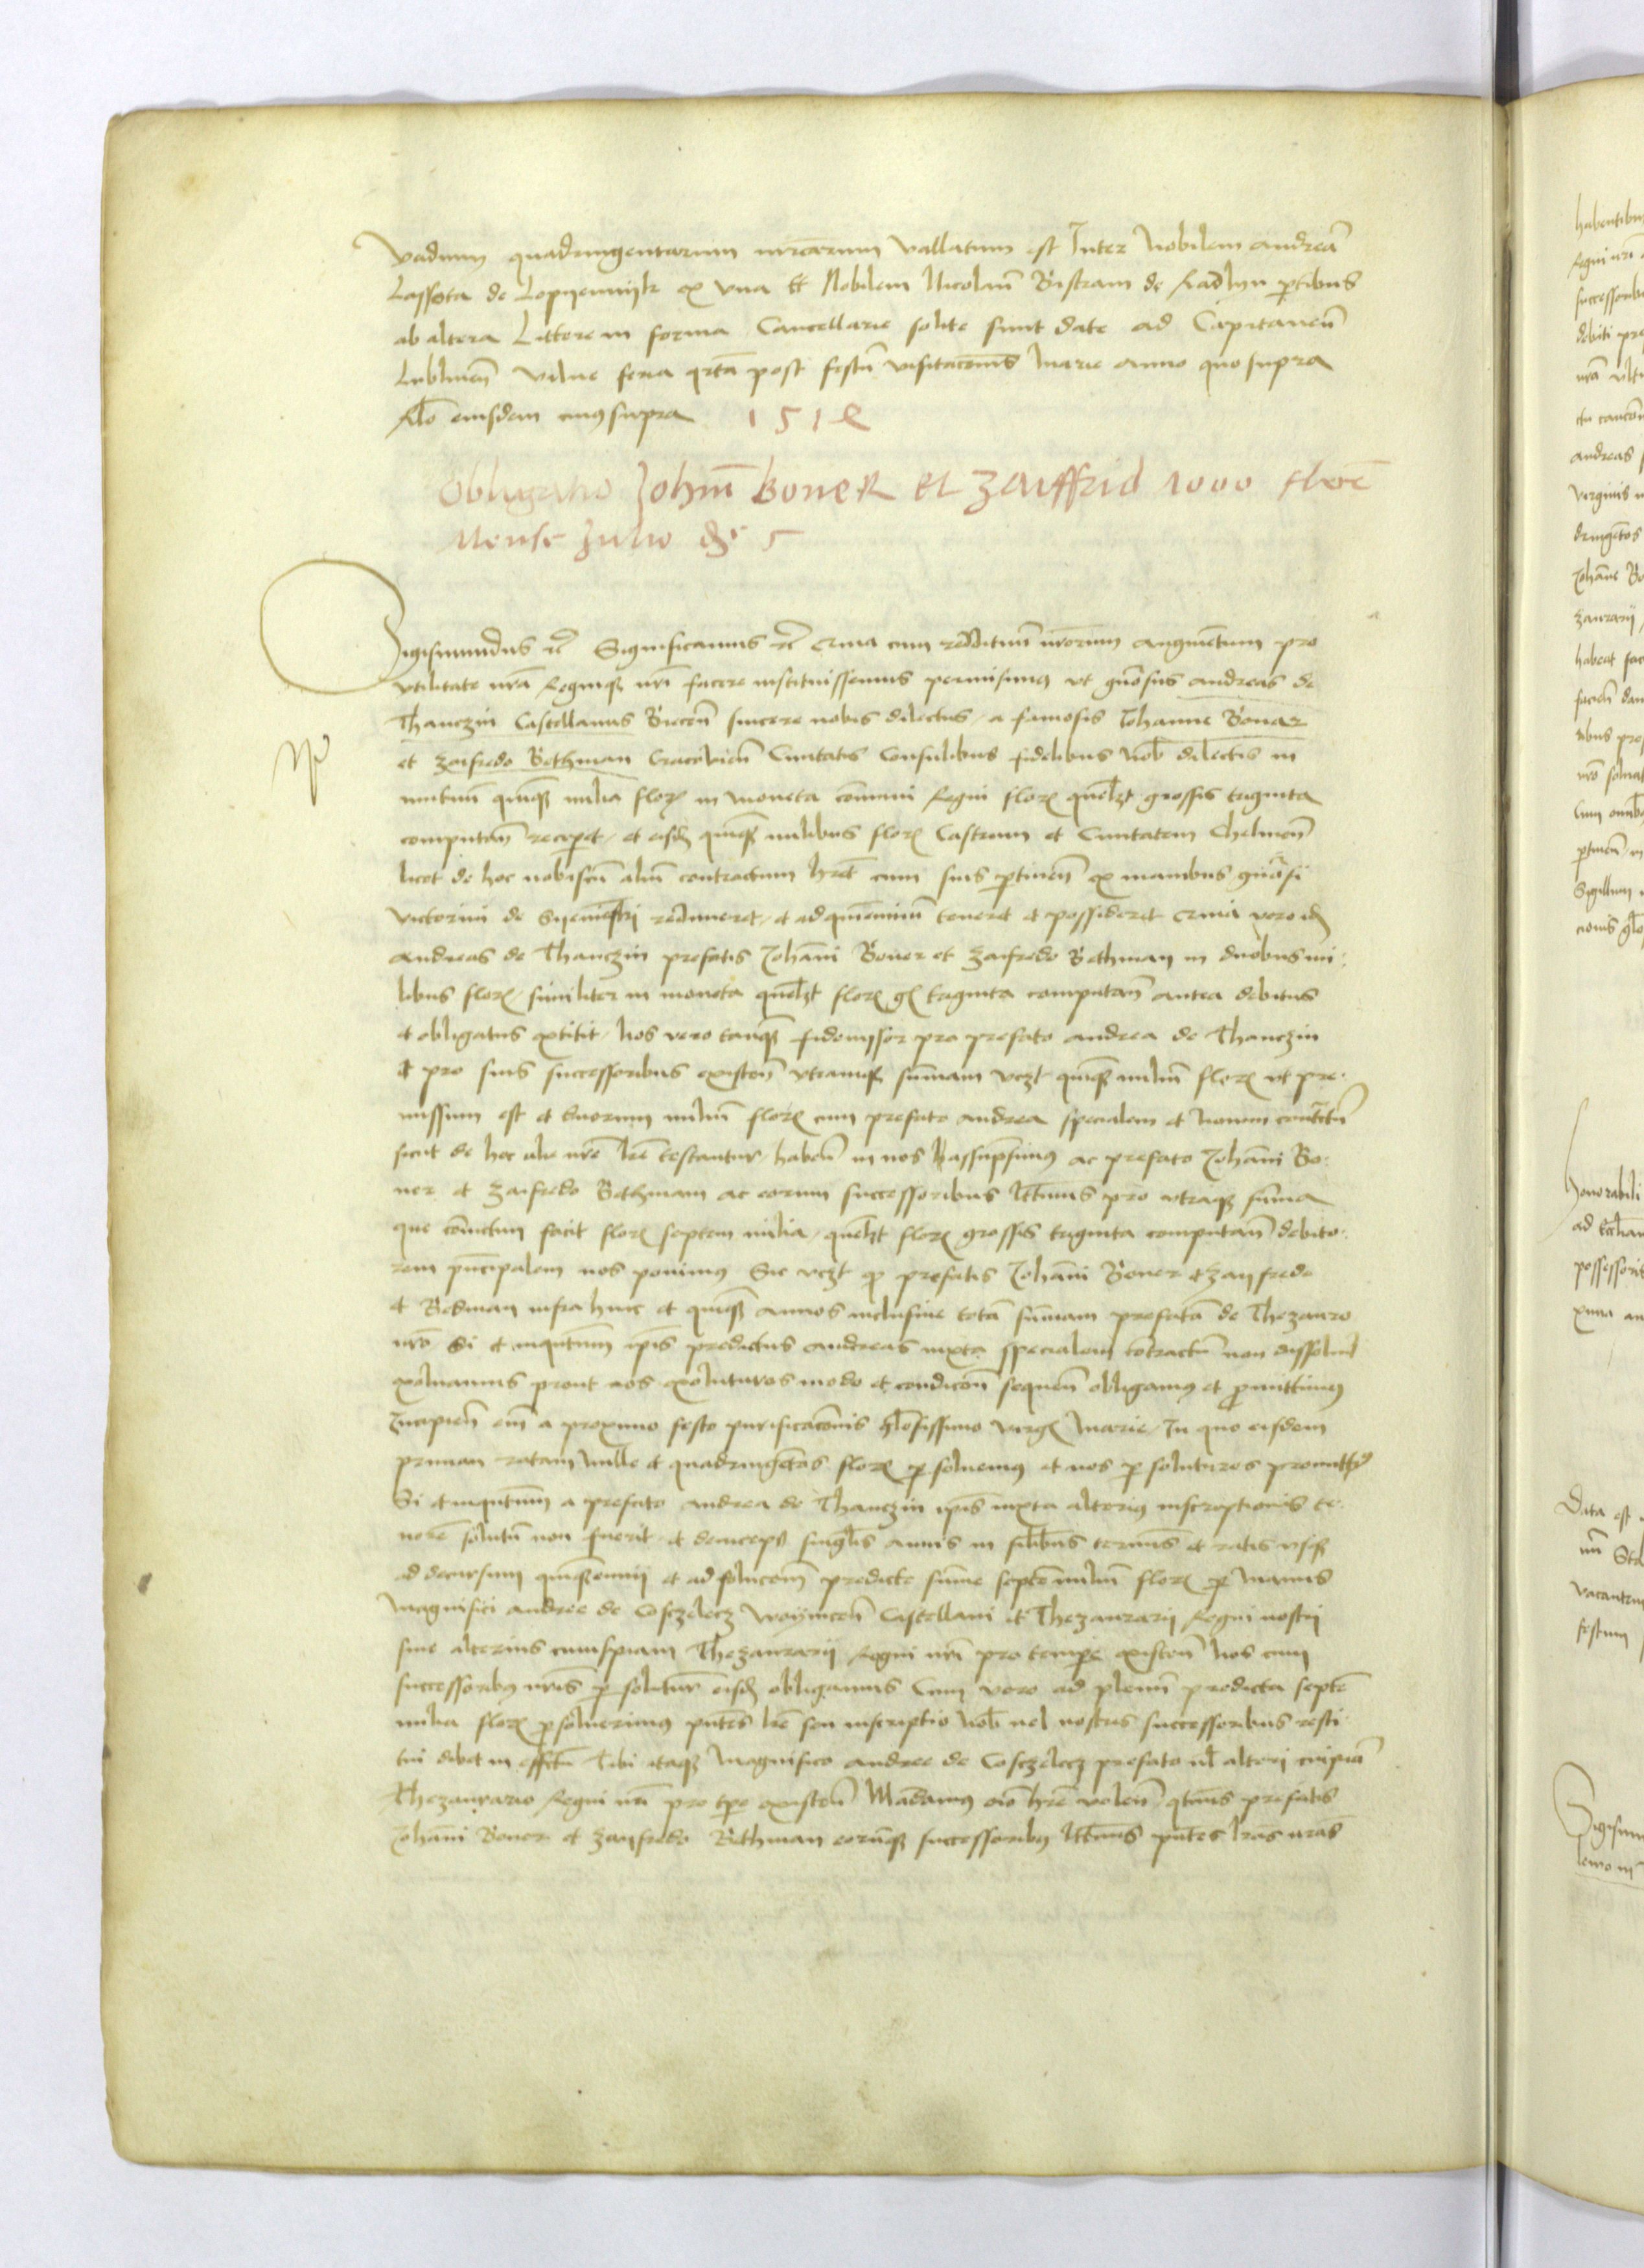 Vadium quadringentarum mrcarum vallatum est Inter Nobilem Andreā
Lassota de Lopyennyk ex una Et Nobilem Nicolaū Bistram de Radlyn ptibus
ab altera Littere in forma Cancellarie solite sunt date ad Capitaneū
Lublineñ Vilne feria qrta post festū visitacōnis Marie anno quo supra
Rlo eiusdem cuius supra 1512
Obligatio Johañ Boner Et Zaiffrid 1000 floreñ
Mense Julio die 5
Sigismundus etc Significamus etc Quia cum reddituū nrorum augmentum pro
utilitate nrā Regniq nrī facere instituissemus permisimus ut gnosus Andreas de
Thanczin Castellanus Bieceñ sincere nobis dilectus a famosis Johanne Boner
et Zaifredo Bethman Cracovieñ Civitatis Consulibus fidelibus nob dilectis in
mutuū quinq milia flor in moneta cōmuni Regni flor quelzt grossis triginta
computañ reciperet et eisd quinq milibus flor Castrum et Civitatem Chelmeñ
licet de hoc nobiscū aliū contractum hret cum suis ptineñ ex manibus gnosi
Victorini de Syennestri redimeret et ad quinēniū teneret et possideret Quia vero id
Andreas de Thanczin prefatis Johāni Boner et Zaifredo Bethman in duobus mi
libus flor similiter in moneta quelzt flor gr triginta computañ antea debitus
et obligatus extitit Nos vero tanq fideiussor pro prefato Andrea de Thanczin
et pro suis successoribus existeñ utramq sūmam vczt quinq miliū flor ut pre
missum est et duorum miliū flor cum prefato Andrea specialem et novum contractū
sicut de hoc alie nre lre testantur habeñ in nos assūpsimus ac prefato Johāni Bo
ner et Zaifredo Bethman ac eorum successoribus lttimis pro utraq sūma
que coniunctim facit flor septem milia quelzt flor grossis triginta computañ debito
rem principalem nos ponimus Sic vczt q prefatis Johāni Boner et Zayfredo
et Bedman infra hinc et quinq annos inclusive totā sūmam prefatā de Thezauro
nrō Si et inquntum ipīs predictus Andreas iuxta specialem cōtractū non dissolvet
exolvamus prout nos exoluturos modo et condicoñ sequeñ obligamus et pmittimus
Incipieñ em a proximo festo purificacōnis glosissime virgis Marie In quo eisdem
primam ratam Mille et quadringentos flor psolvemus et nos psoluturos promittimus
Si et inquntum a prefato Andrea de Thanczin ipīs iuxta alterius inscriptionis te
norē solutū non fuerit et deinceps singlis annis in silibus terminis et ratis usq
ad decursum quinquennii et ad solucōem predicte sūme septē miliū flor p manus
Magnifici Andree de Cosczelecz Woynicēn Castellani et Thezaurarii Regni nostri
sive alterius cuiuspiam Thezaurarii Regni nrī pro tempe existeñ Nos cum
successoribus nris psolutur eisd obligamus Cum vero ad plenū predicta septē
milia flor psolverimus pntes lre seu inscriptio nob vel nostris successoribus resti
tui debet in effectū Tibi itaq Magnifico Andree de Cosczelecz prefato vl alteri cuipiā
Thezaurario Regni nrī pro tpe existeñ Mādamus oīo hre voleñ qtnus prefatis
Johāni Boner et Zayfredo Bethman eorūq successoribus lttimis pntes lras nras